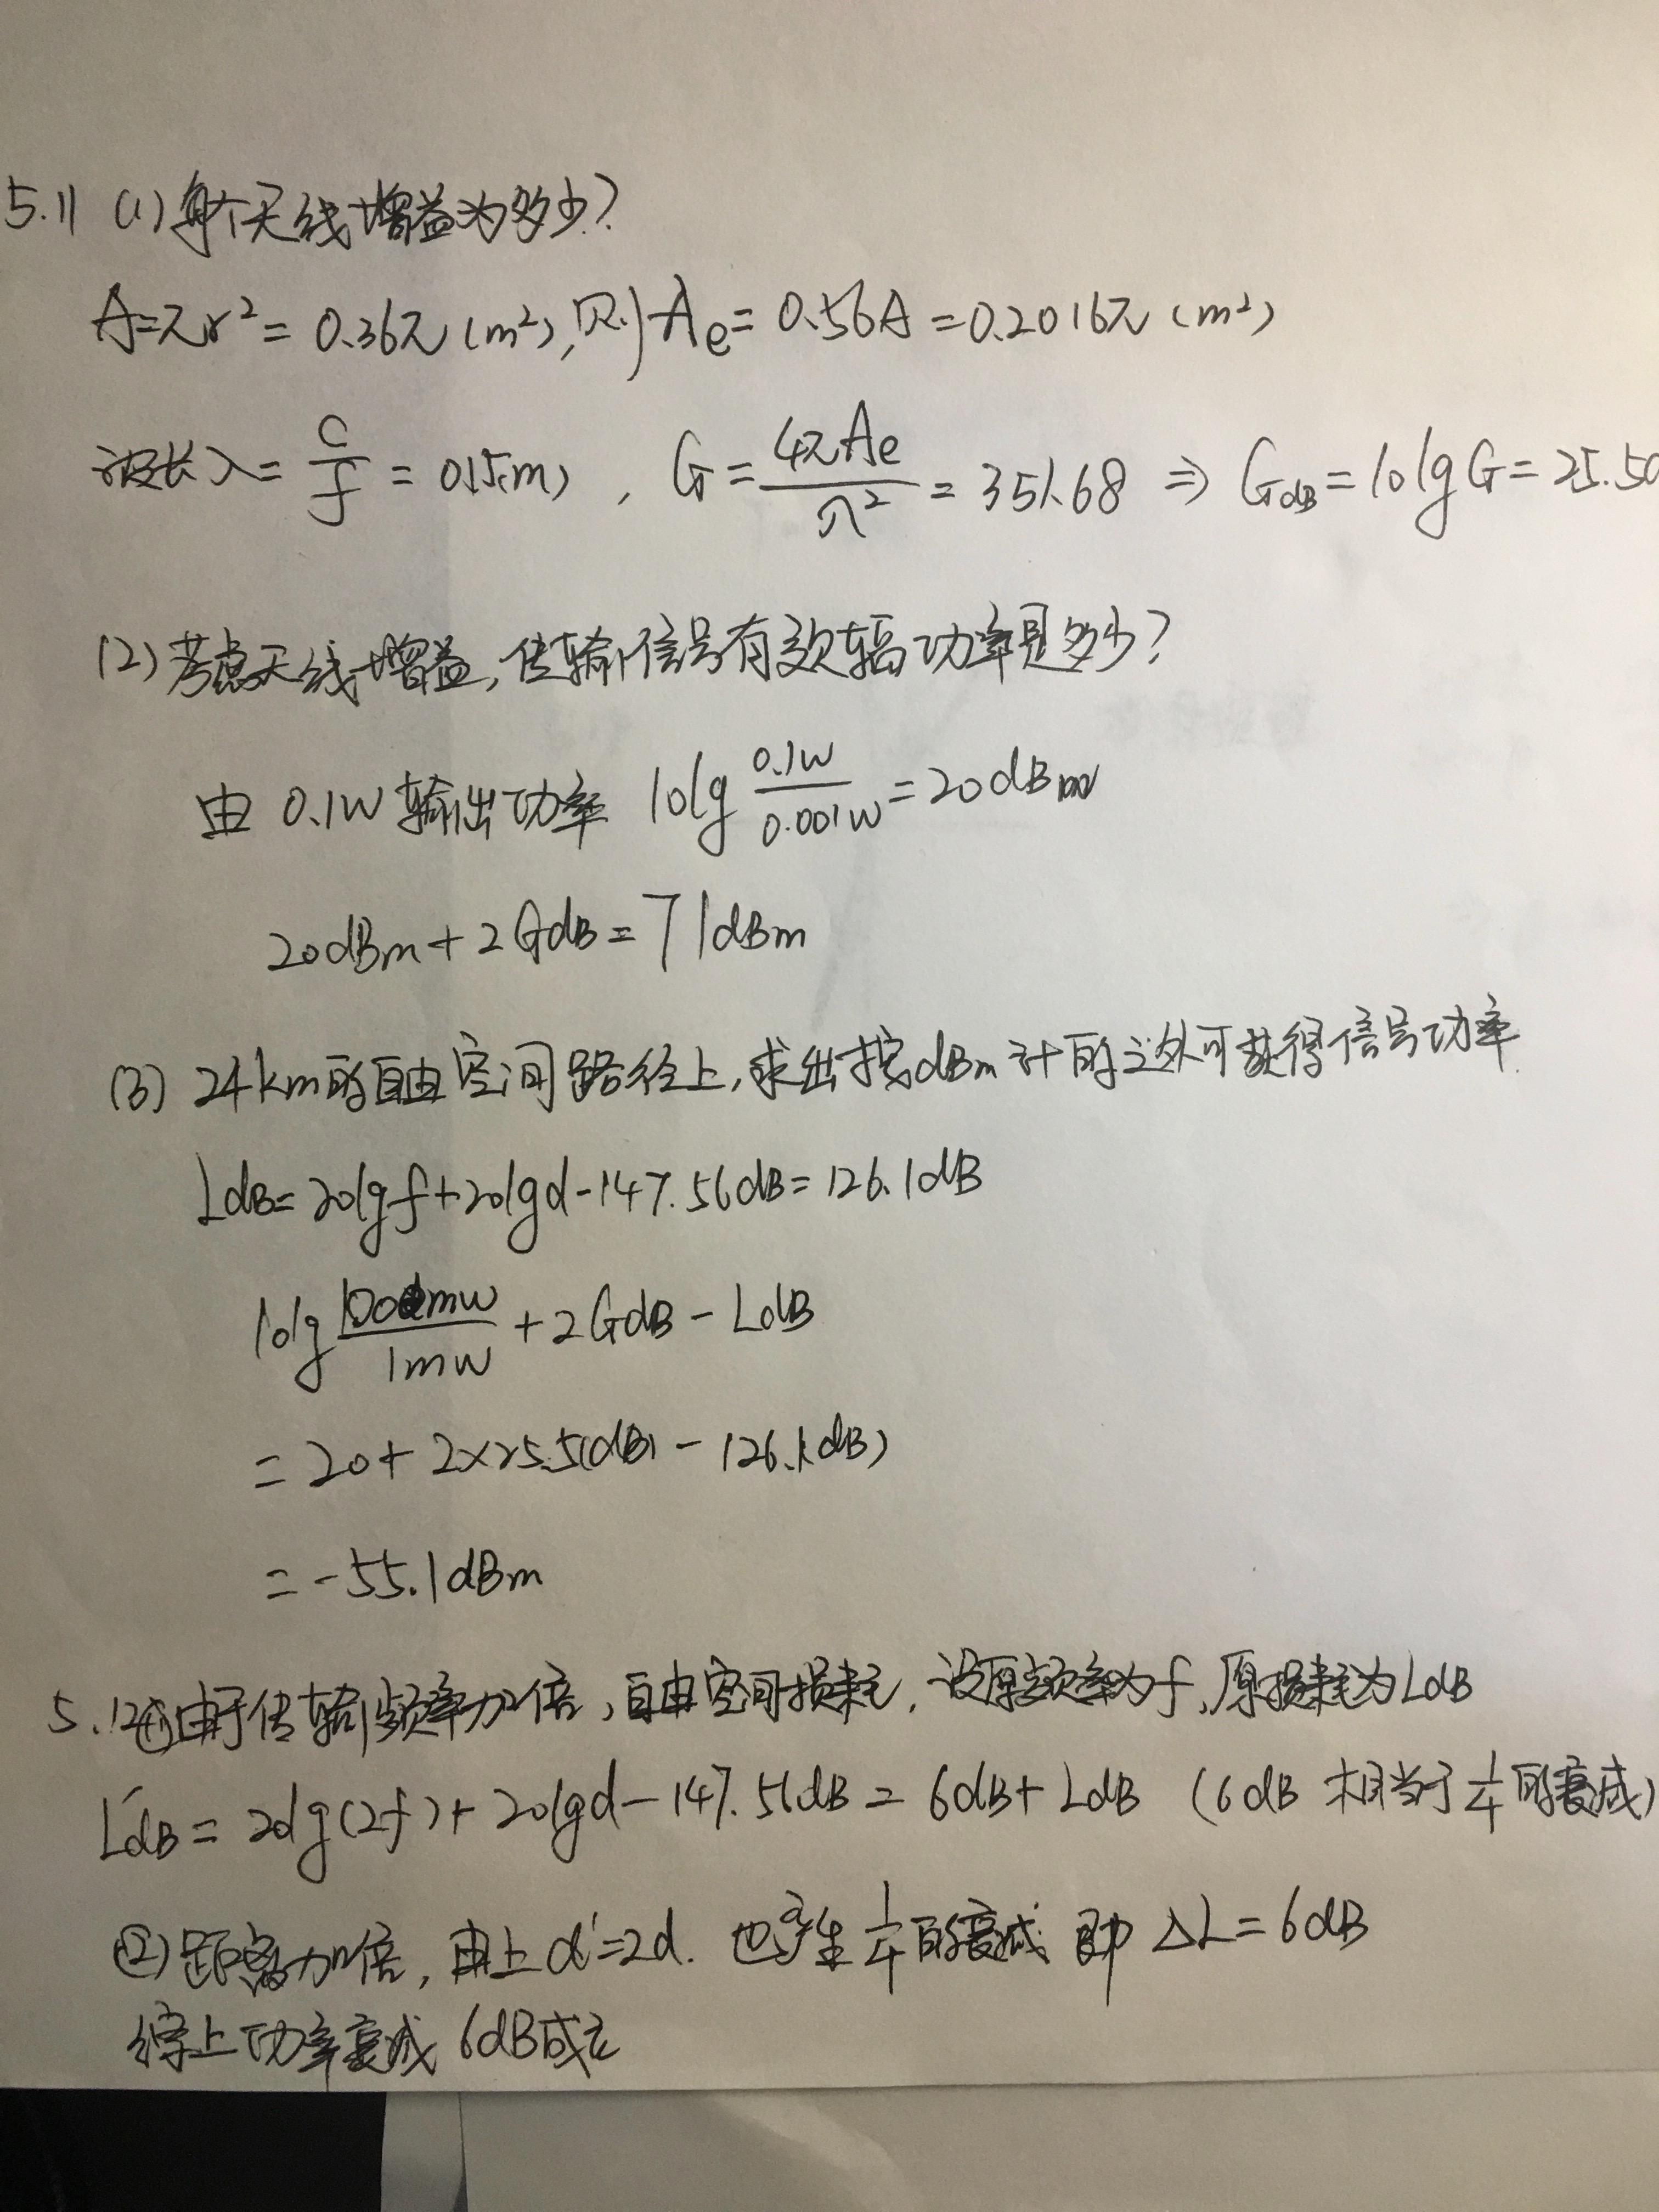 5.11 (1) 每个天线增益为多少?
A=πr²= 0.36π (m²), 则 Ae= 0.56A =0.2016π (m²)
波长λ= c/f = 0.15(m) , G= 4πAe/λ² = 351.68 ⇒ GdB=10lgG=25.50
(2) 考虑天线增益, 传输信号有效辐功率是多少?
由 0.1W 输出功率 10lg 0.1W/0.001W =20dBm
20dBm+2GdB=71dBm
(3) 24km的自由空间路径上,求出按dBm计的之外可获得信号功率.
LdB=20lgf+20lgd-147.56dB=126.1dB
10lg 100mW/1mW +2GdB-LdB
=20+2×25.5(dB)-126.1(dB)
=-55.1dBm
5.12 ① 由于传输频率加倍,自由空间损耗,设原频率为f,原损耗为LdB
L'dB=20lg(2f)+20lgd-147.56dB=6dB+LdB (6dB 相当于1/4的衰减)
② 距离加倍,由上d'=2d. 也产生1/4的衰减 即 ΔL=6dB
综上功率衰减 6dB成立